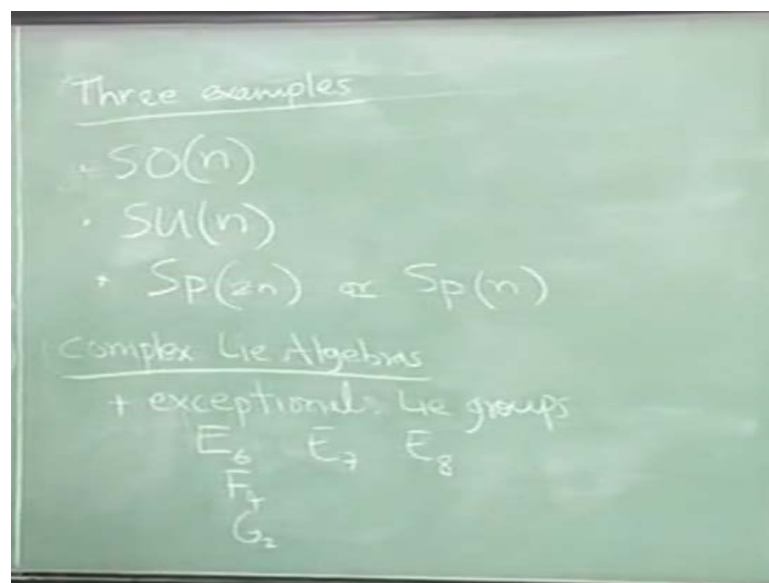 Three examples
· SO(n)
· SU(n)
· Sp(2n) or Sp(n)
Complex Lie Algebras
+ exceptional Lie groups
E₆ E₇ E₈
F₄
G₂